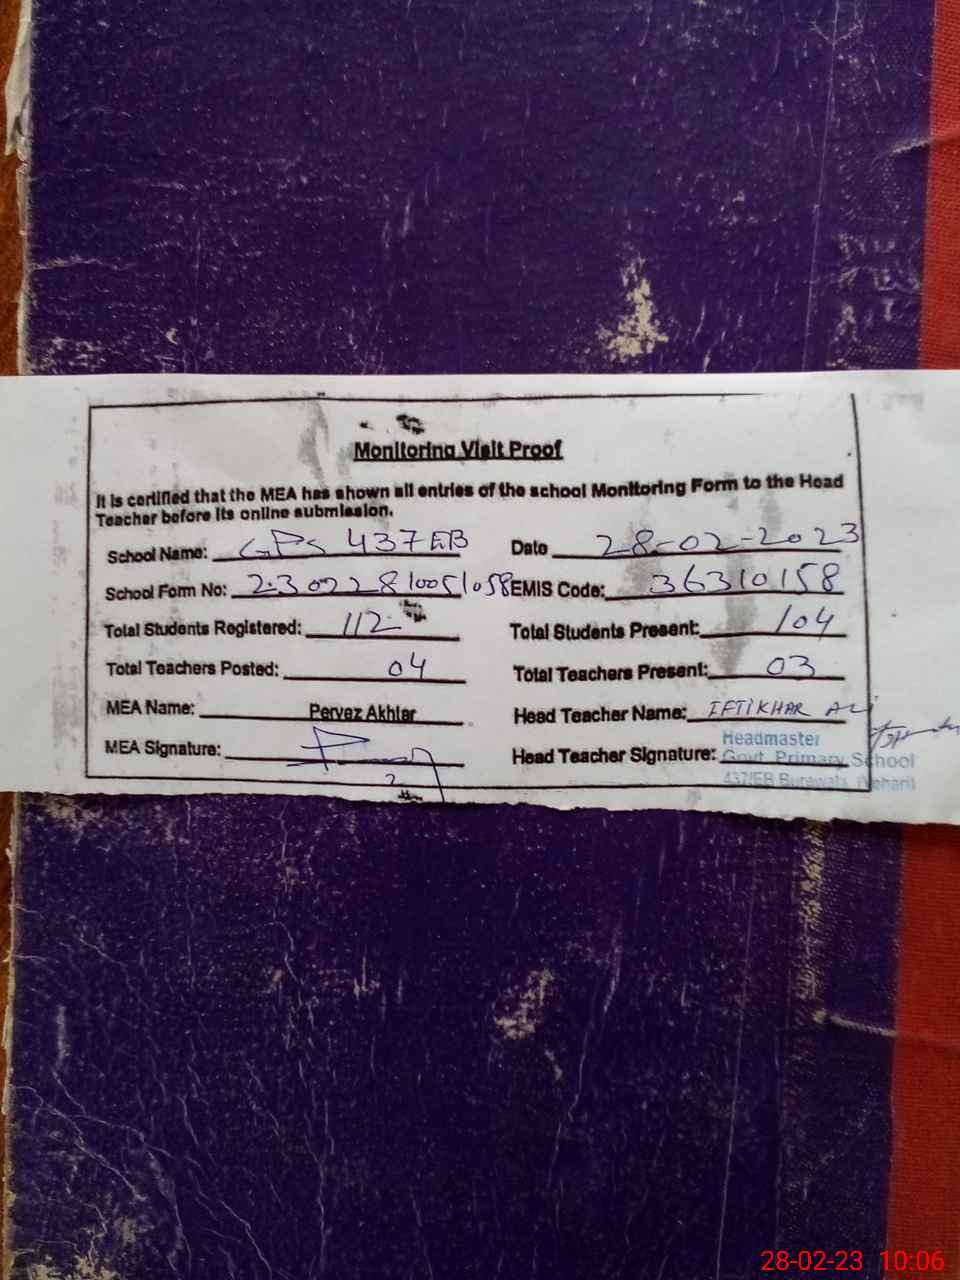 Monitoring Visit Proof
It is certified that the MEA has shown all entries of the school Monitoring Form to the Head
Teacher before its online submission.
School Name: GPS 437 EB Date 28-02-2023
School Form No: 23022810051058 EMIS Code: 36310158
Total Students Registered: 112 Total Students Present: 104
Total Teachers Posted: 04 Total Teachers Present: 03
MEA Name: Pervez Akhter Head Teacher Name: IFTIKHAR ALI
MEA Signature: Head Teacher Signature:
Headmaster
Govt Primary School
437/EB Burewala (Vehari)
2
28-02-23 10:06